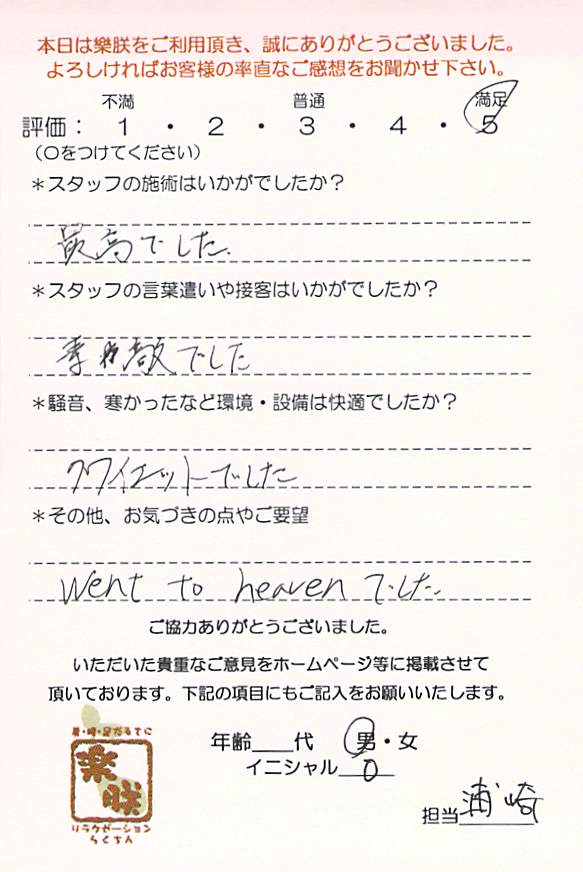 本日は樂朕をご利用頂き、誠にありがとうございました。
よろしければお客様の率直なご感想をお聞かせ下さい。
不満 普通 満足
評価： 1 ・ 2 ・ 3 ・ 4 ・ 5
（〇をつけてください）
＊スタッフの施術はいかがでしたか？
最高でした。
＊スタッフの言葉遣いや接客はいかがでしたか？
素敵でした
＊騒音、寒かったなど環境・設備は快適でしたか？
クワイエットでした
＊その他、お気づきの点やご要望
went to heaven でした。
ご協力ありがとうございました。
いただいた貴重なご意見をホームページ等に掲載させて
頂いております。下記の項目にもご記入をお願いいたします。
年齢＿＿代 男・女
イニシャル O
担当 浦崎
肩・腰・足かるてに
樂朕
リラクゼーション
らくちん